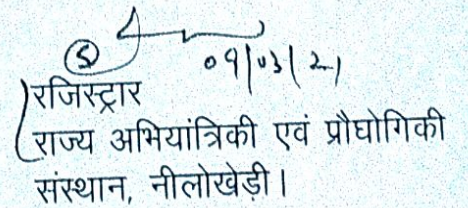 5 09/03/21
रजिस्ट्रार
राज्य अभियांत्रिकी एवं प्रौघोगिकी
संस्थान, नीलोखेड़ी।